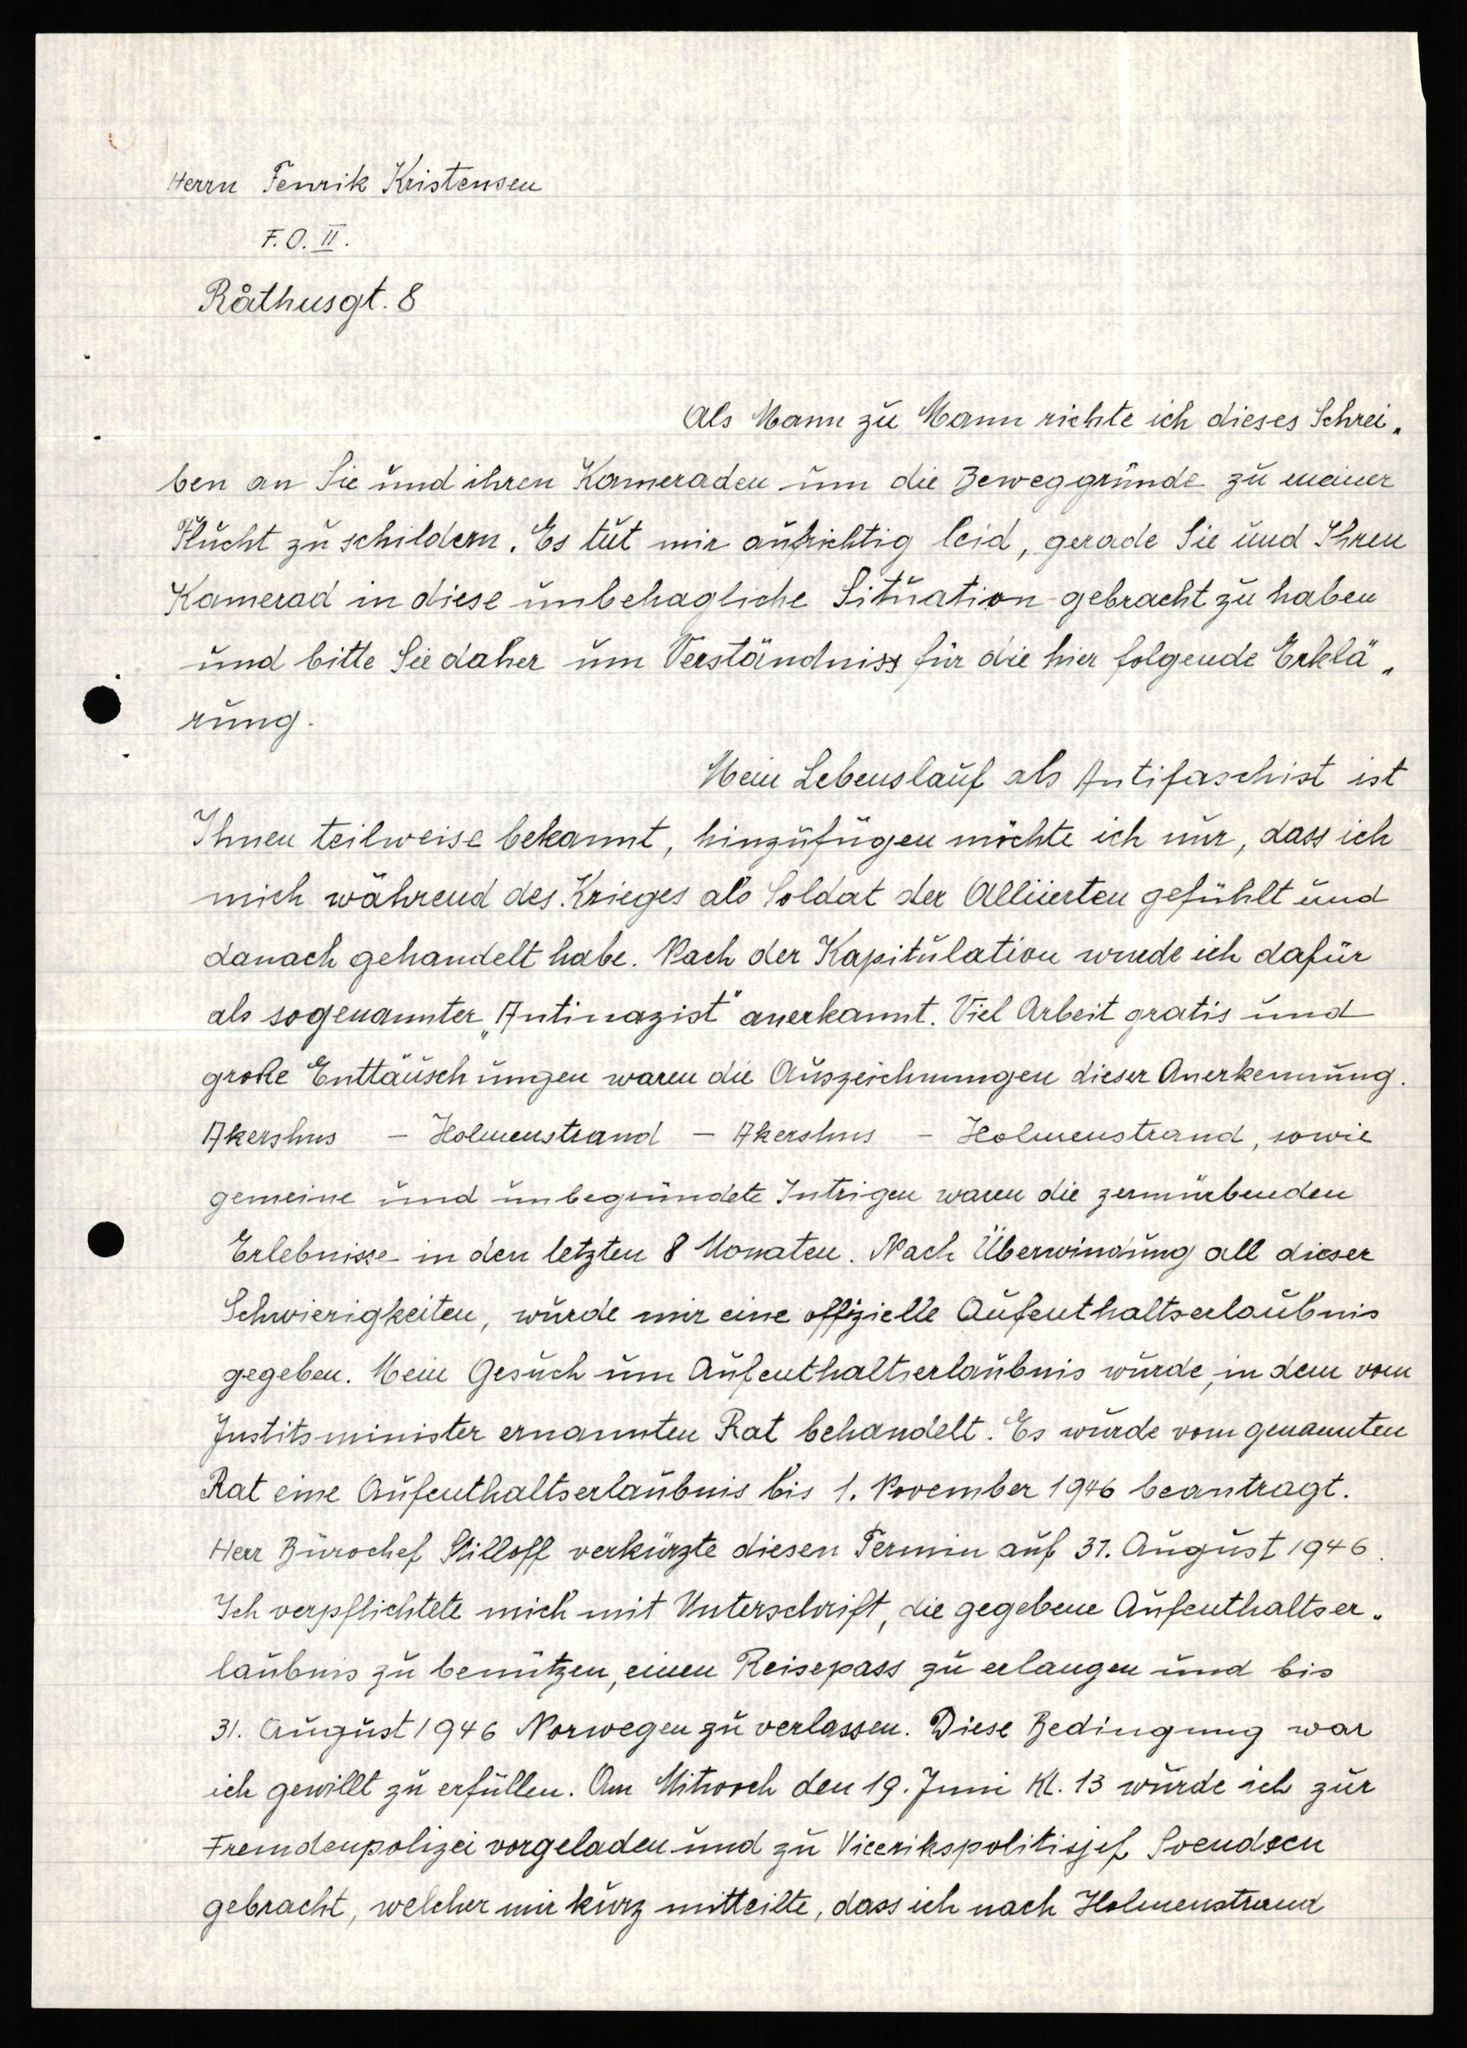 Herrn Fenrik Kristensen
F.O. II.
Råthusgt. 8
Als Mann zu Mann richte ich dieses Schrei„
ben an Sie und ihren Kameraden um die Beweggründe zu meiner
Flucht zu schildern. Es tut mir aufrichtig leid, gerade Sie und Ihren
Kamerad in diese unbehagliche Situation gebracht zu haben
und bitte Sie daher um Verständniss für die hier folgende Erklä„
rung.
Mein Lebenslauf als Antifaschist ist
Ihnen teilweise bekannt, hinzufügen möchte ich nur, dass ich
mich während des Krieges als Soldat der Alliierten gefühlt und
danach gehandelt habe. Nach der Kapitulation wurde ich dafür
als sogenannter „Antinazist" anerkannt. Viel Arbeit gratis und
große Enttäuschungen waren die Auszeichnungen dieser Anerkennung.
Akershus – Holmenstrand – Akershus – Holmenstrand, sowie
gemeine und unbegründete Intrigen waren die zermürbenden
Erlebnisse in den letzten 8 Monaten. Nach Überwindung all dieser
Schwierigkeiten, wurde mir eine offizielle Aufenthaltserlaubnis
gegeben. Mein Gesuch um Aufenthaltserlaubnis wurde, in dem vom
Justitsminister ernannten Rat behandelt. Es wurde vom genannten
Rat eine Aufenthaltserlaubnis bis 1. November 1946 beantragt.
Herr Bürochef Skilloff verkürzte diesen Termin auf 31. August 1946.
Ich verpflichtete mich mit Unterschrift, die gegebene Aufenthaltser„
laubnis zu benützen, einen Reisepass zu erlangen und bis
31. August 1946 Norwegen zu verlassen. Diese Bedingung war
ich gewillt zu erfüllen. Am Mitwoch den 19. Juni Kl. 13 wurde ich zur
Fremdenpolizei vorgeladen und zu Vicerikspolitisjef Svendsen
gebracht, welcher mir kurz mitteilte, dass ich nach Holmenstrand